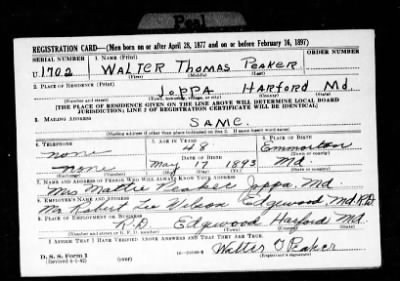 Peal
REGISTRATION CARD—(Men born on or after April 28, 1877 and on or before February 16, 1897)
SERIAL NUMBER 1. NAME (Print) ORDER NUMBER
U 1702 WALTER THOMAS PEAKER
(First) (Middle) (Last)
2. PLACE OF RESIDENCE (Print)
JOPPA HARFORD Md.
(Number and street) (Town, township, village, or city) (County) (State)
[THE PLACE OF RESIDENCE GIVEN ON THE LINE ABOVE WILL DETERMINE LOCAL BOARD
JURISDICTION; LINE 2 OF REGISTRATION CERTIFICATE WILL BE IDENTICAL]
3. MAILING ADDRESS
SAME.
[Mailing address if other than place indicated on line 2. If same insert word same]
4. TELEPHONE 5. AGE IN YEARS 6. PLACE OF BIRTH
none 48 Emmorton
DATE OF BIRTH (Town or county)
none May 17 1893 Md.
(Exchange) (Number) (Mo.) (Day) (Yr.) (State or country)
7. NAME AND ADDRESS OF PERSON WHO WILL ALWAYS KNOW YOUR ADDRESS
Mrs Mattie Peaker Joppa, Md.
8. EMPLOYER'S NAME AND ADDRESS
Mr. Robert Lee Wilson Edgewood Md. R.D.
9. PLACE OF EMPLOYMENT OR BUSINESS
R.D. Edgewood Harford Md.
(Number and street or R. F. D. number) (Town) (County) (State)
I AFFIRM THAT I HAVE VERIFIED ABOVE ANSWERS AND THAT THEY ARE TRUE.
D. S. S. Form 1 Walter T Peaker
(Revised 4-1-42) (over) (Registrant's signature)